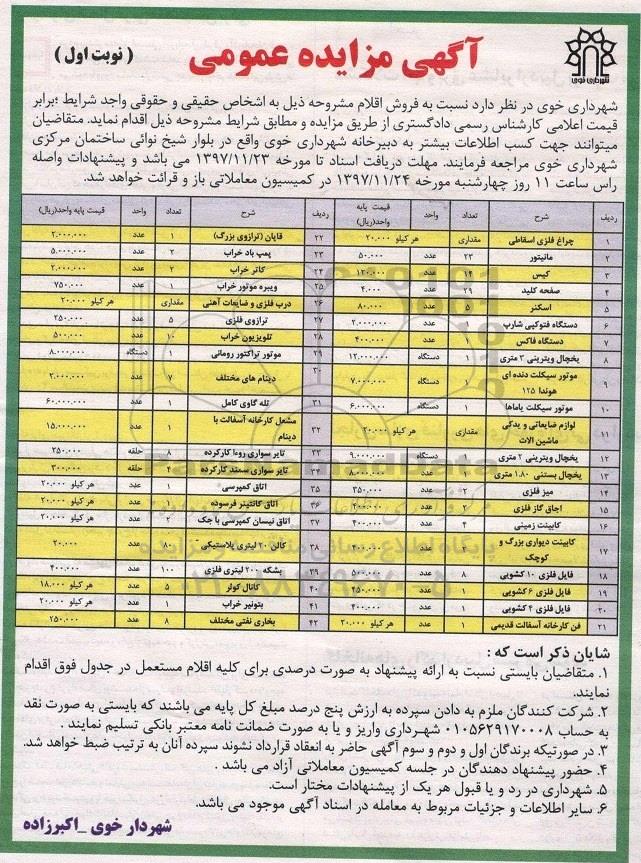 شهرداری خوی
آگهی مزایده عمومی
( نوبت اول )
شهرداری خوی در نظر دارد نسبت به فروش اقلام مشروحه ذیل به اشخاص حقیقی و حقوقی واجد شرایط ؛برابر
قیمت اعلامی کارشناس رسمی دادگستری از طریق مزایده و مطابق شرایط مشروحه ذیل اقدام نماید. متقاضیان
میتوانند جهت کسب اطلاعات بیشتر به دبیرخانه شهرداری خوی واقع در بلوار شیخ نوائی ساختمان مرکزی
شهرداری خوی مراجعه فرمایند. مهلت دریافت اسناد تا مورخه ۱۳۹۷/۱۱/۲۳ می باشد و پیشنهادات واصله
راس ساعت ۱۱ روز چهارشنبه مورخه ۱۳۹۷/۱۱/۲۴ در کمیسیون معاملاتی باز و قرائت خواهد شد.
ردیف شرح تعداد واحد قیمت پایه واحد(ریال) ردیف شرح تعداد واحد قیمت پایه واحد(ریال)
۱ چراغ فلزی اسقاطی مقداری هر کیلو ۲۰.۰۰۰ ۲۲ قاپان (ترازوی بزرگ) ۱ عدد ۲.۰۰۰.۰۰۰
۲ مانیتور ۲۳ عدد ۵۰.۰۰۰ ۲۳ پمپ باد خراب ۲ عدد ۵.۰۰۰.۰۰۰
۳ کیس ۱۴ عدد ۱۲۰.۰۰۰ ۲۴ کاتر خراب ۲ عدد ۲.۰۰۰.۰۰۰
۴ صفحه کلید ۲۹ عدد ۴.۰۰۰ ۲۵ ویبره موتور خراب ۱ عدد ۷۵۰.۰۰۰
۵ اسکنر ۵ عدد ۸۰.۰۰۰ ۲۶ درب فلزی و ضایعات آهنی مقداری هر کیلو ۲۰.۰۰۰
۶ دستگاه فتوکپی شارپ ۱ عدد ۲.۰۰۰.۰۰۰ ۲۷ ترازوی فلزی ۵ عدد ۲۵۰.۰۰۰
۷ دستگاه فاکس ۱ عدد ۴۰۰.۰۰۰ ۲۸ تلویزیون خراب ۱۰ عدد ۵۰۰.۰۰۰
۸ یخچال ویترینی ۲ متری ۱ دستگاه ۱۲.۰۰۰.۰۰۰ ۲۹ موتور تراکتور رومانی ۱ دستگاه ۸.۰۰۰.۰۰۰
۹ موتور سیکلت دنده ای هوندا ۱۲۵ ۱ دستگاه ۷.۰۰۰.۰۰۰ ۳۰ دینام های مختلف ۷ عدد ۲.۰۰۰.۰۰۰
۱۰ موتور سیکلت یاماها ۱ دستگاه ۶.۰۰۰.۰۰۰ ۳۱ تله گاوی کامل ۱ عدد ۶۰.۰۰۰.۰۰۰
۱۱ لوازم ضایعاتی و یدکی ماشین الات مقداری هر کیلو ۲۰.۰۰۰ ۳۲ مشعل کارخانه آسفالت با دینام ۱ عدد ۱۵.۰۰۰.۰۰۰
۱۲ یخچال ویترینی ۲ متری ۱ دستگاه ۹.۰۰۰.۰۰۰ ۳۳ تایر سواری روءا کارکرده ۸ حلقه ۲۵۰.۰۰۰
۱۳ یخچال بستنی ۱.۸۰ متری ۱ ۳۴ تایر سواری سمند کارکرده حلقه ۳۰۰.۰۰۰
۱۴ میز فلزی ۲ عدد ۳۵۰.۰۰۰ ۳۵ اتاق کمپرسی ۱ عدد هر کیلو ۲۰.۰۰۰
۱۵ اجاق گاز فلزی ۲ عدد ۲۰۰.۰۰۰ ۳۶ اتاق کانتینر فرسوده ۱ عدد هر کیلو ۲۰.۰۰۰
۱۶ کابینت زمینی ۴ عدد ۴۰۰.۰۰۰ ۳۷ اتاق نیسان کمپرسی با جک ۲ عدد هر کیلو ۲۰.۰۰۰
۱۷ کابینت دیواری بزرگ و کوچک عدد ۳۸ کالن ۲۰ لیتری پلاستیکی ۸۰ عدد ۲۰.۰۰۰
۱۸ فایل فلزی ۱۰ کشویی ۸ عدد ۵۰۰.۰۰۰ ۳۹ بشکه ۲۰۰ لیتری فلزی ۱۰۰ عدد ۴۰۰.۰۰۰
۱۹ فایل فلزی ۶ کشویی ۱ عدد ۴۵۰.۰۰۰ ۴۰ کانال کولر ۵ عدد هر کیلو ۱۸.۰۰۰
۲۰ فایل فلزی ۴ کشویی ۱ عدد ۴۰۰.۰۰۰ ۴۱ بتونیر خراب ۱ عدد هر کیلو ۲۰.۰۰۰
۲۱ فن کارخانه آسفالت قدیمی ۱ عدد هر کیلو ۲۰.۰۰۰ ۴۲ بخاری نفتی مختلف ۸ عدد ۲۵۰.۰۰۰
شایان ذکر است که :
۱. متقاضیان بایستی نسبت به ارائه پیشنهاد به صورت درصدی برای کلیه اقلام مستعمل در جدول فوق اقدام
نمایند.
۲. شرکت کنندگان ملزم به دادن سپرده به ارزش پنج درصد مبلغ کل پایه می باشند که بایستی به صورت نقد
به حساب ۰۱۰۵۶۲۹۱۷۰۰۰۸ شهرداری واریز و یا به صورت ضمانت نامه معتبر بانکی تسلیم نمایند .
۳. در صورتیکه برندگان اول و دوم و سوم آگهی حاضر به انعقاد قرارداد نشوند سپرده آنان به ترتیب ضبط خواهد شد.
۴. حضور پیشنهاد دهندگان در جلسه کمیسیون معاملاتی آزاد می باشد .
۵. شهرداری در رد و یا قبول هر یک از پیشنهادات مختار است.
۶. سایر اطلاعات و جزئیات مربوط به معامله در اسناد آگهی موجود می باشد.
شهردار خوی _اکبرزاده